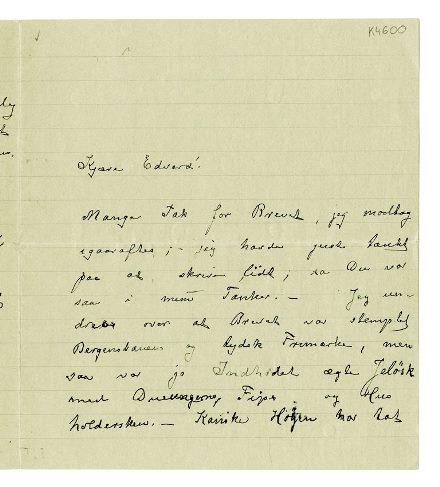 K4600
Kjære Edvard!
Mange Tak for Brevet, jeg modtog
igaaraftes; – jeg havde just tænkt
paa at skrive lidt; da Du var
saa i mine Tanker. – Jeg un-
dres over at Brevet var stemplet
Bergensbanen og tydsk Frimærke, men
saa var jo Indholdet ægte Jeløisk
med Dueungerne, Fips og Hus
holdersken. – Kanske har tat